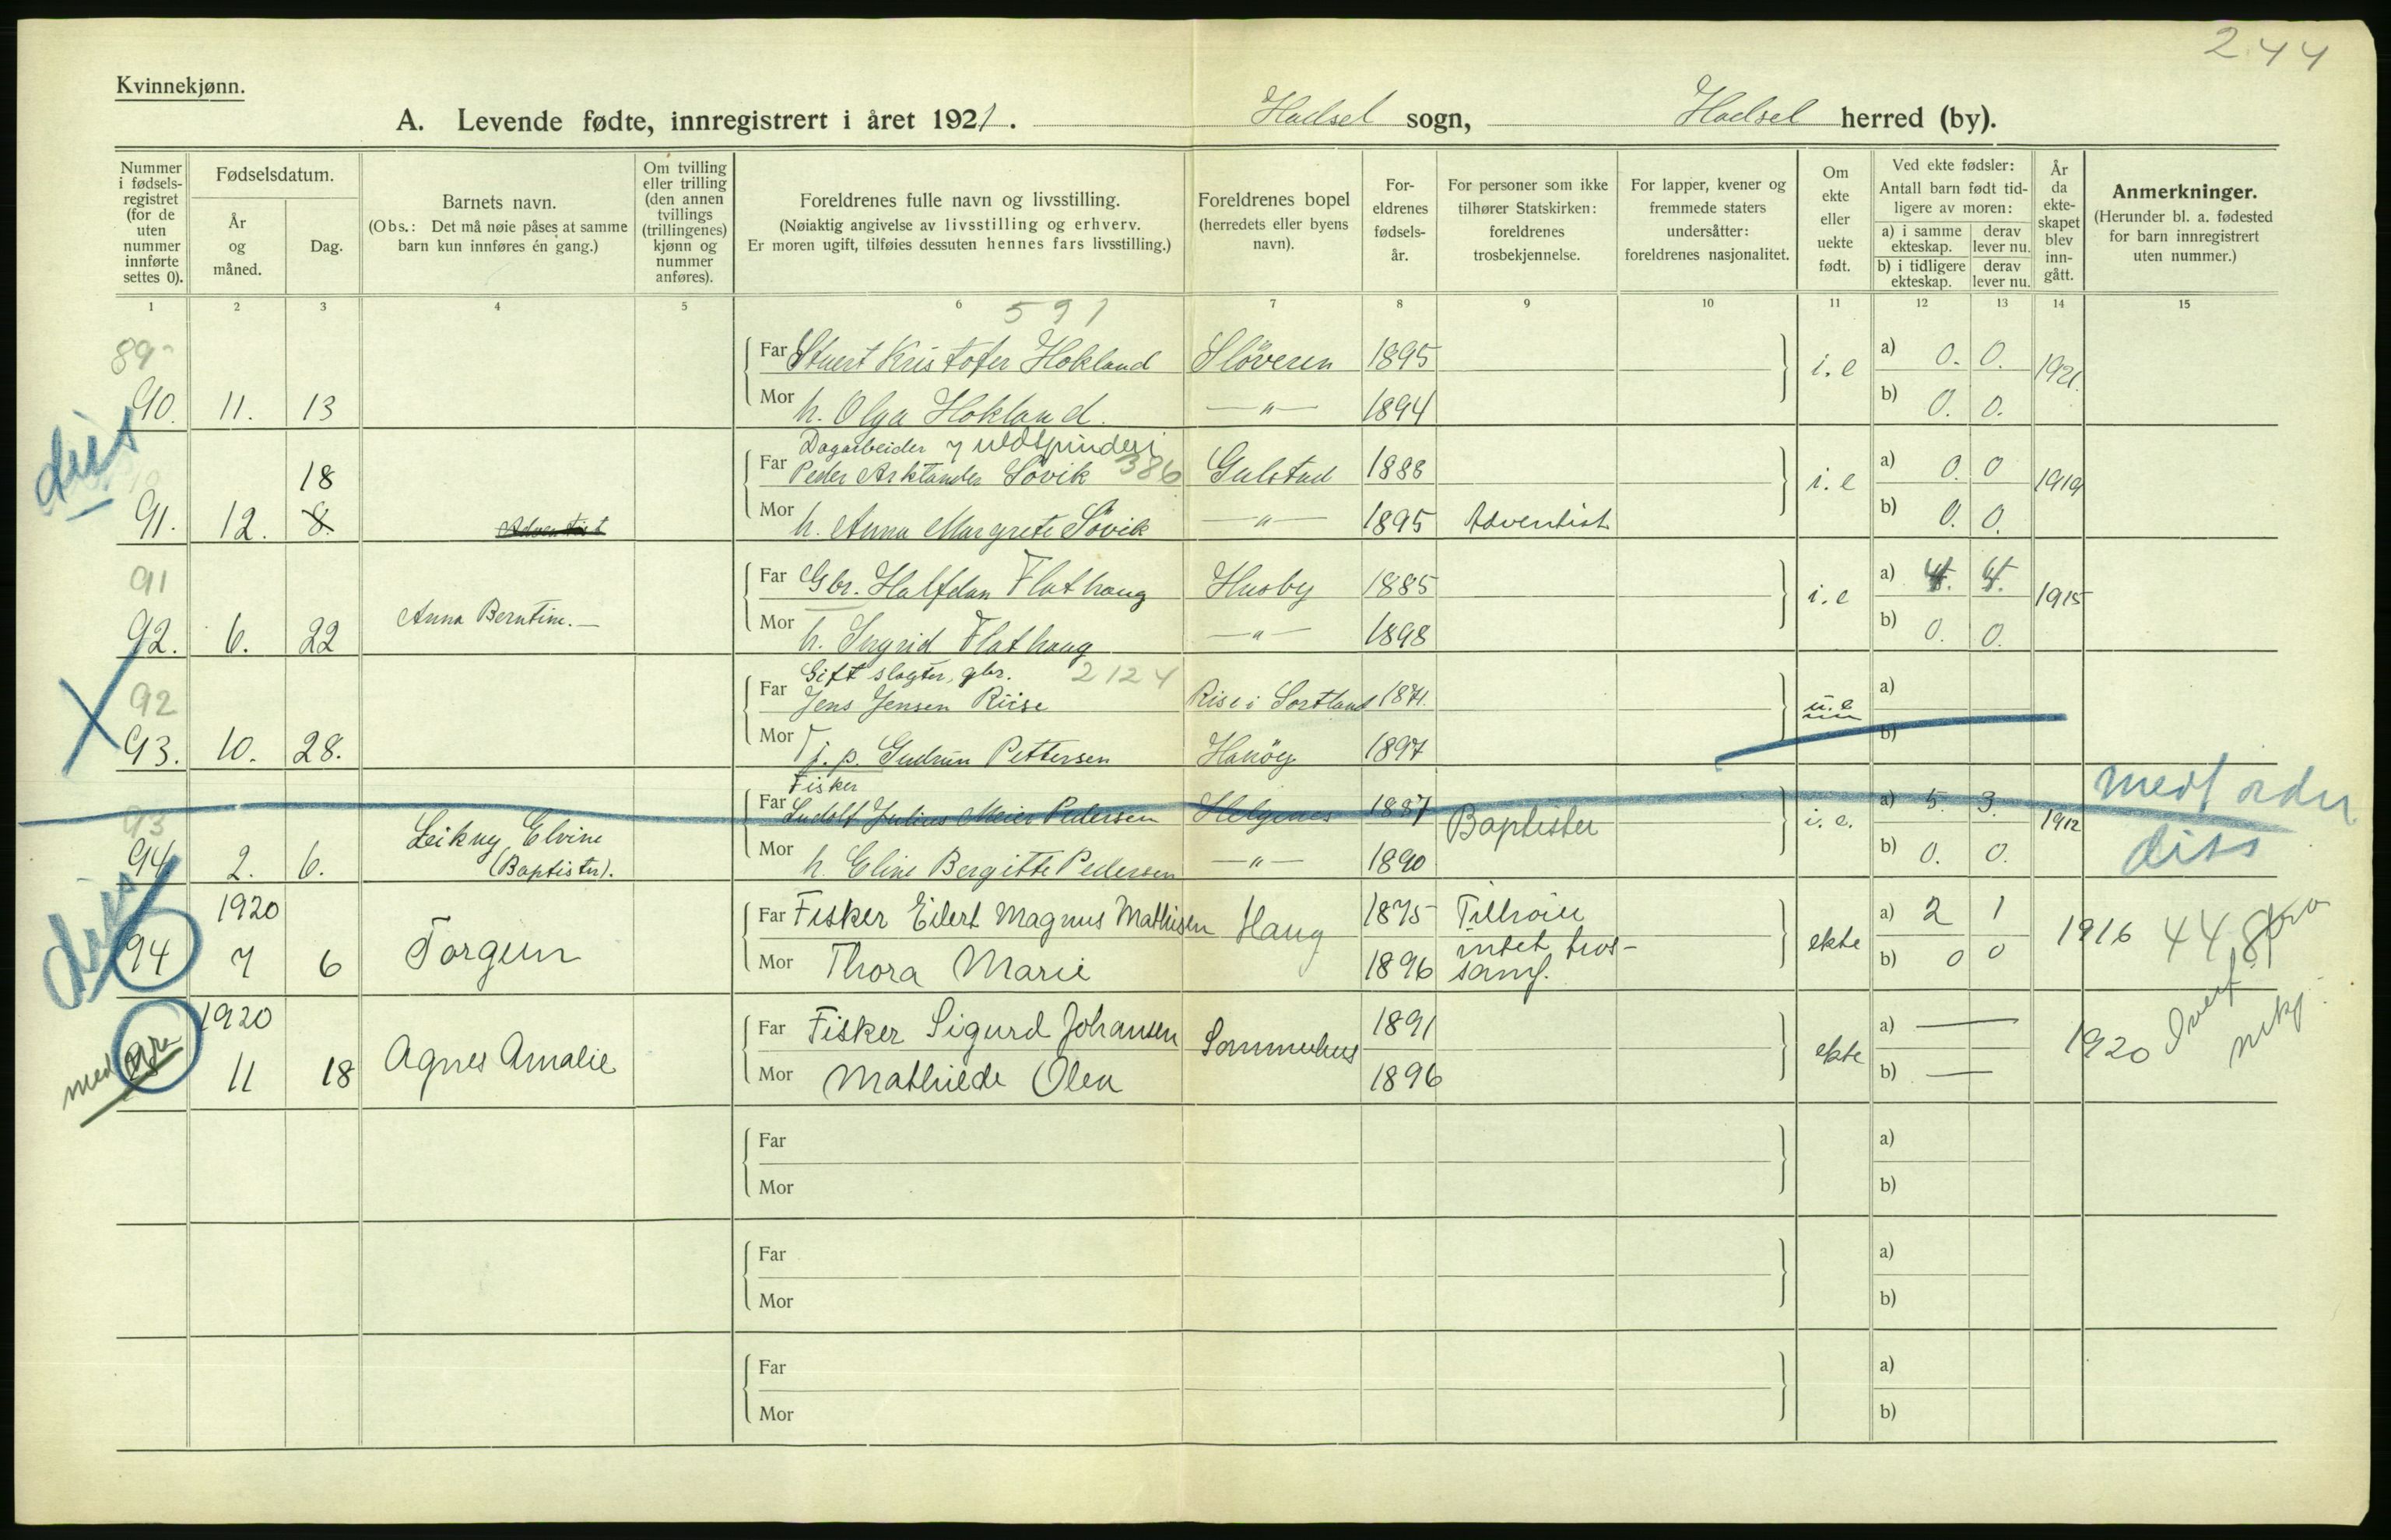 244
Kvinnekjønn.
A. Levende fødte, innregistrert i året 1921. Hadsel sogn, Hadsel herred (by).
Nummer i fødsels-registret (for de uten nummer innførte settes 0).
Fødselsdatum.
År og måned.
Dag.
Barnets navn.
(Obs.: Det må nøie påses at samme barn kun innføres én gang.)
Om tvilling eller trilling (den annen tvillings (trillingenes) kjønn og nummer anføres).
Foreldrenes fulle navn og livsstilling.
(Nøiaktig angivelse av livsstilling og erhverv. Er moren ugift, tilføies dessuten hennes fars livsstilling.)
Foreldrenes bopel (herredets eller byens navn).
For-eldrenes fødsels-år.
For personer som ikke tilhører Statskirken: foreldrenes trosbekjennelse.
For lapper, kvener og fremmede staters undersåtter: foreldrenes nasjonalitet.
Om ekte eller uekte født.
Ved ekte fødsler:
Antall barn født tid-ligere av moren:
a) i samme ekteskap. derav lever nu.
b) i tidligere ekteskap. derav lever nu.
År da ekte-skapet blev inn-gått.
Anmerkninger.
(Herunder bl. a. fødested for barn innregistrert uten nummer.)
1 2 3 4 5 6 7 8 9 10 11 12 13 14 15
591
89
Far Stuert Kristofer Hokland Slöveren 1895 i. e a) 0. 0. 1921.
90. 11. 13 Mor h. Olga Hokland. —"— 1894 b) 0. 0.
diss
Dagarbeider Uldspinderi
18 Far Peder Arktander Sövik 386 Gulstad 1888 i. e a) 0. 0 1919
91. 12. 8. Adventist Mor h. Anna Margrete Sövik —"— 1895 Adventist b) 0. 0.
91
Far Gbr. Halfdan Flathaug Husby 1885 i. e a) 4. 4. 1915
92. 6. 22 Anna Berntine.— Mor h. Ingrid Flathaug —"— 1898 b) 0. 0.
Gift slagter, gbr. 2124
92 Far Jens Jensen Riise Rise i Sortland 1871. u. e a)
93. 10. 28. Mor Tj. p. Gudrun Pettersen Hanöy 1897 b)
Fisker
93 Far Ludolf Julius Meier Pedersen Helgenes 1887 Baptister i. e. a) 5. 3. 1912 medt under
94 2. 6. Leikny Elvine (Baptister). Mor h. Eline Bergitte Pedersen —"— 1890 b) 0. 0. diss
diss
1920 Far Fisker Eilert Magnus Mathisen Haug 1875 Tilhörer ekte a) 2 1 1916 448
94 7 6 Torgun Mor Thora Marie 1896 intet tros-samf. b) 0 0
1920 Far Fisker Sigurd Johansen Sommerhus 1891 ekte a) — 1920
med 11 18 Agnes Amalie Mor Mathilde Olea 1896 b) —
Far a)
Mor b)
Far a)
Mor b)
Far a)
Mor b)